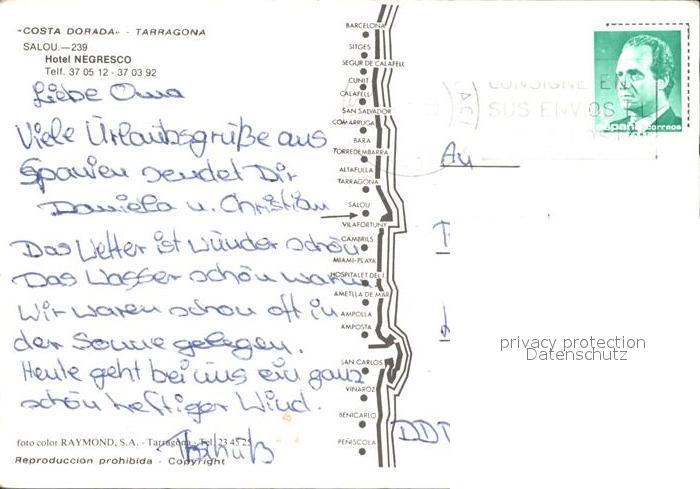 "COSTA DORADA" - TARRAGONA
SALOU.—239
Hotel NEGRESCO
Telf. 37 05 12 - 37 03 92
Liebe Oma
Viele Urlaubsgrüße aus
Spanien sendet Dir
Daniela u. Christian
Das Wetter ist wunder schön
Das Wasser schön warm
Wir waren schon oft in
der Sonne gelegen.
Heute geht bei uns ein ganz
schön heftiger Wind.
Tschüß
foto color RAYMOND, S.A. - Tarragona - Tel. 23 45 25
Reproducción prohibida - Copyright
BARCELONA
SITGES
SEGUR DE CALAFELL
CUNIT
CALAFELL
SAN SALVADOR
COMARRUGA
BARA
TORREDEMBARRA
ALTAFULLA
TARRAGONA
SALOU
VILAFORTUNY
CAMBRILS
MIAMI-PLAYA
HOSPITALET DEL I.
AMETLLA DE MAR
AMPOLLA
AMPOSTA
SAN CARLOS
VINAROZ
BENICARLO
PEÑISCOLA
CONSIGNE EN
SUS ENVIOS EL
España correos
An
DDT
privacy protection
Datenschutz